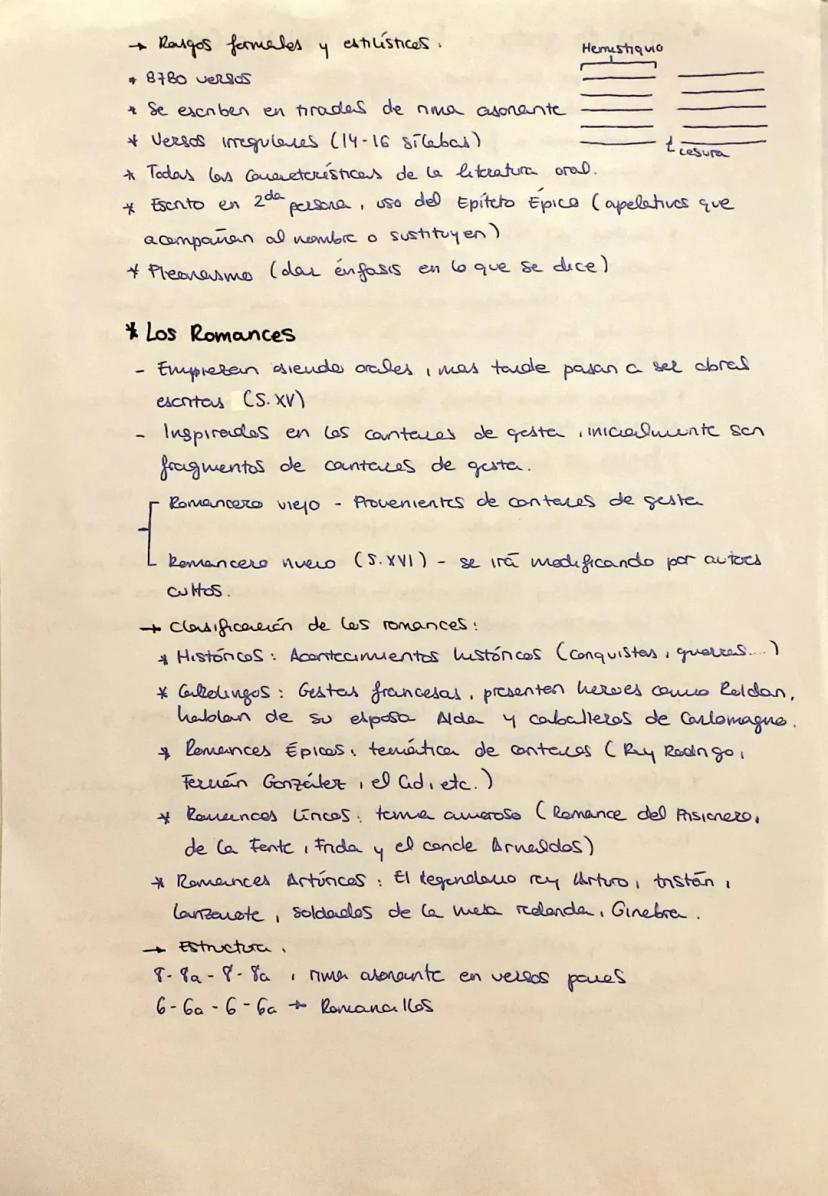 → Rasgos formales y estilísticos.
Hemistiquio
* 8780 versos
* Se escriben en tiradas de rima asonante
* Versos irregulares (14-16 sílabas)
cesura
* Todas las características de la literatura oral.
* Escrito en 2da persona, uso del Epíteto Épico (apelativos que
acompañan al nombre o sustituyen)
* Pleonasmo (dar énfasis en lo que se dice)
* Los Romances
- Empiezan siendo orales, mas tarde pasan a ser obras
escritas (S.XV)
- Inspirados en los cantares de gesta, inicialmente son
fragmentos de cantares de gesta.
Romancero viejo - Provenientes de cantares de gesta
Romancero nuevo (S.XVI) - se irá modificando por autores
cultos.
→ Clasificación de los romances:
* Históricos: Acontecimientos históricos (conquistas, guerras....)
* Carolingos: Gestas francesas, presentan héroes como Roldan,
hablan de su esposa Alda y caballeros de Carlomagno.
* Romances Épicos: temática de cantares (Rey Rodrigo,
Fernán González, el Cid, etc.)
* Romances Líricos: tema amoroso (Romance del Prisionero,
de la Fonte, Frida y el conde Arnaldos)
* Romances Artúricos: El legendario rey Arturo, tristán,
lanzarote, soldados de la mesa redonda, Ginebra.
→ Estructura.
8-8a-8-8a, rima asonante en versos pares
6-6a-6-6a → Romancillos